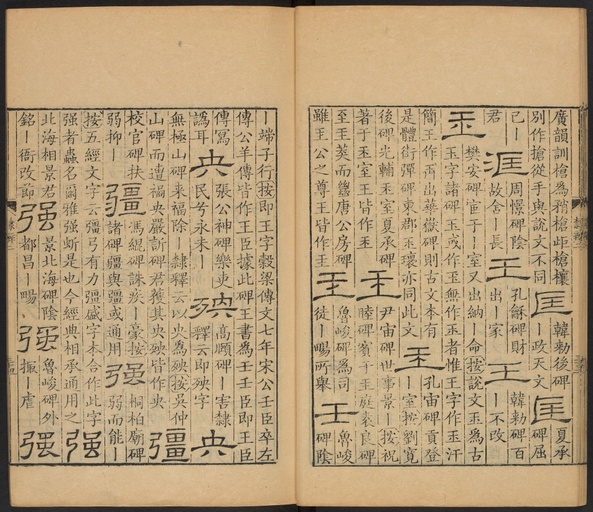 廣韻訓槍為矟槍岠槍欀 匡 韓勅後碑 匡 夏承
別作搶從手與說文不同 ｜政天文 碑屈
已｜ 涯 周憬碑陰 王 孔龢碑財 王 韓勅碑百
君 故舍｜長 出｜家 ｜不改
玉 樊安碑宦于｜室又出納｜命按說文玉為古
玉字諸碑玉或作王無作玉者惟王字作玉汗
簡王作再出華嶽碑則古文本有 玉 孔宙碑貢登
是體衛彈碑東郡王瓌亦同此文 ｜室按劉寬
後碑光輔玉室夏承碑 玉 尹宙碑世事景｜按祝
著于玉室王皆作玉 睦碑賓于玉庭袁良碑
至玉莽而鐘唐公房碑 玉 魯峻碑為司 壬 魯峻
雖玉公之尊王皆作玉 徒｜暘所舉 碑陰
｜端子行按即王字穀梁傳文七年宋公壬臣卒左
傳公羊傳皆作王臣據此碑王書為壬壬臣即王臣
傳寫 央 張公神碑樂史 殃 高頤碑｜害隸 央
譌耳 民兮永未｜ 釋云即殃字
無極山碑来福除｜隸釋云以央為殃按吳仲 疆
山碑而遭禍央嚴訢碑君獲其央殃皆作央
校官碑扶 疆 馮緄碑誅｜豪按 强 桐柏廟碑
弱抑｜ 諸碑疆與彊或通用 弱而能｜
按五經文字云彊弓有力彊盛字本合作此字 强
强者蟲名爾雅强蚚是也今經典相承通用之
北海相景君 强 景北海碑陰 强 魯峻碑外 强
銘｜衙改節 都昌｜暘 振｜虐